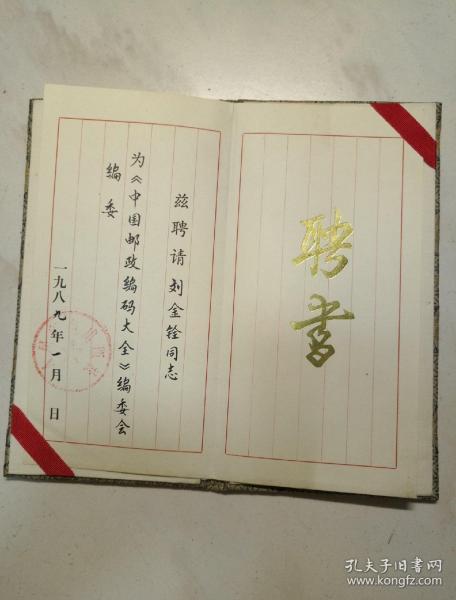 聘书
兹聘请刘金铨同志
为《中国邮政编码大全》编委会
编委
一九八九年一月 日
孔夫子旧书网
www.kongfz.com